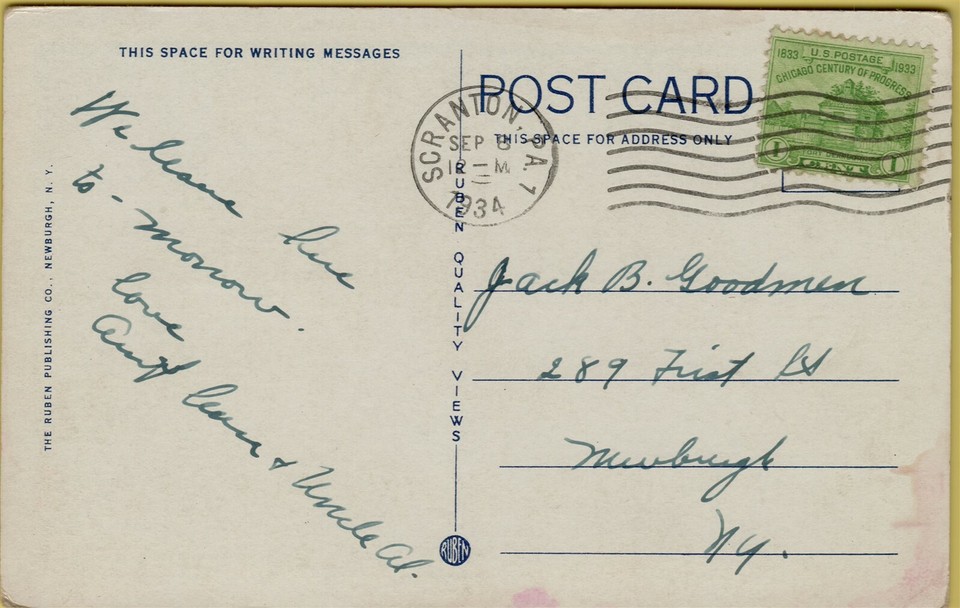 THIS SPACE FOR WRITING MESSAGES
We leave here
to-morrow.
love
Aunt & Uncle Al.
THE RUBEN PUBLISHING CO., NEWBURGH, N. Y.
RUBEN QUALITY VIEWS
RUBEN
POST CARD
THIS SPACE FOR ADDRESS ONLY
SCRANTON, PA. 1
SEP
12 M
1934
1833 U.S. POSTAGE 1933
CHICAGO CENTURY OF PROGRESS
1 CENT 1
Jack B. Goodmen
289 First St
Newburgh
NY.